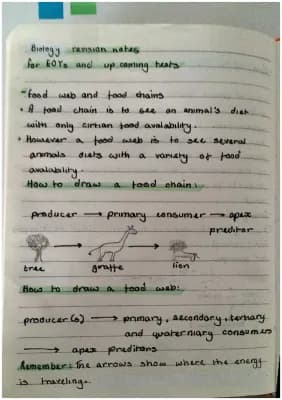 Biology revision notes
for EOYs and up coming tests
- Food web and food chains
• A food chain is to see an animal's diet
with only cirtian food avalability.
• However a food web is to see several
animals diets with a variety of food
avalability.
How to draw a food chain:
producer → primary consumer → apex
preditor
tree
giraffe
lion
How to draw a food web:
producer(s) → primary, secondary, tertiary
and quaterniary consumers
→ apex preditors
Remember: The arrows show where the energy
is traveling.